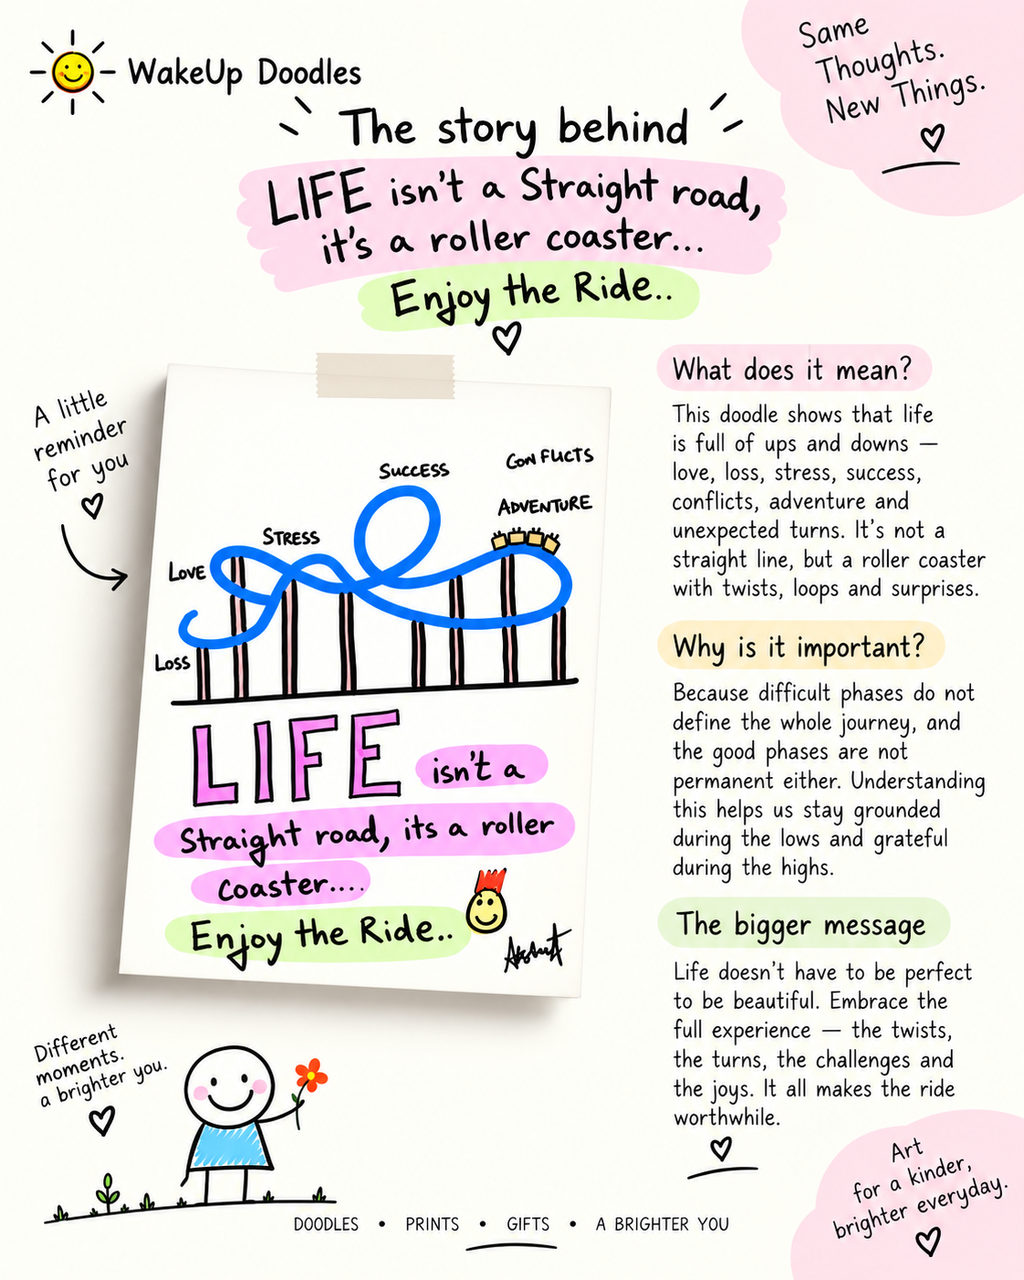 WakeUp Doodles
Same
Thoughts.
New Things.
The story behind
LIFE isn't a Straight road,
it's a roller coaster...
Enjoy the Ride..
A little
reminder
for you
SUCCESS
CONFLICTS
ADVENTURE
STRESS
LOVE
LOSS
LIFE isn't a
Straight road, its a roller
coaster....
Enjoy the Ride..
What does it mean?
This doodle shows that life
is full of ups and downs —
love, loss, stress, success,
conflicts, adventure and
unexpected turns. It's not a
straight line, but a roller coaster
with twists, loops and surprises.
Why is it important?
Because difficult phases do not
define the whole journey, and
the good phases are not
permanent either. Understanding
this helps us stay grounded
during the lows and grateful
during the highs.
The bigger message
Life doesn't have to be perfect
to be beautiful. Embrace the
full experience — the twists,
the turns, the challenges and
the joys. It all makes the ride
worthwhile.
Different
moments.
a brighter you.
Art
for a kinder,
brighter everyday.
DOODLES • PRINTS • GIFTS • A BRIGHTER YOU